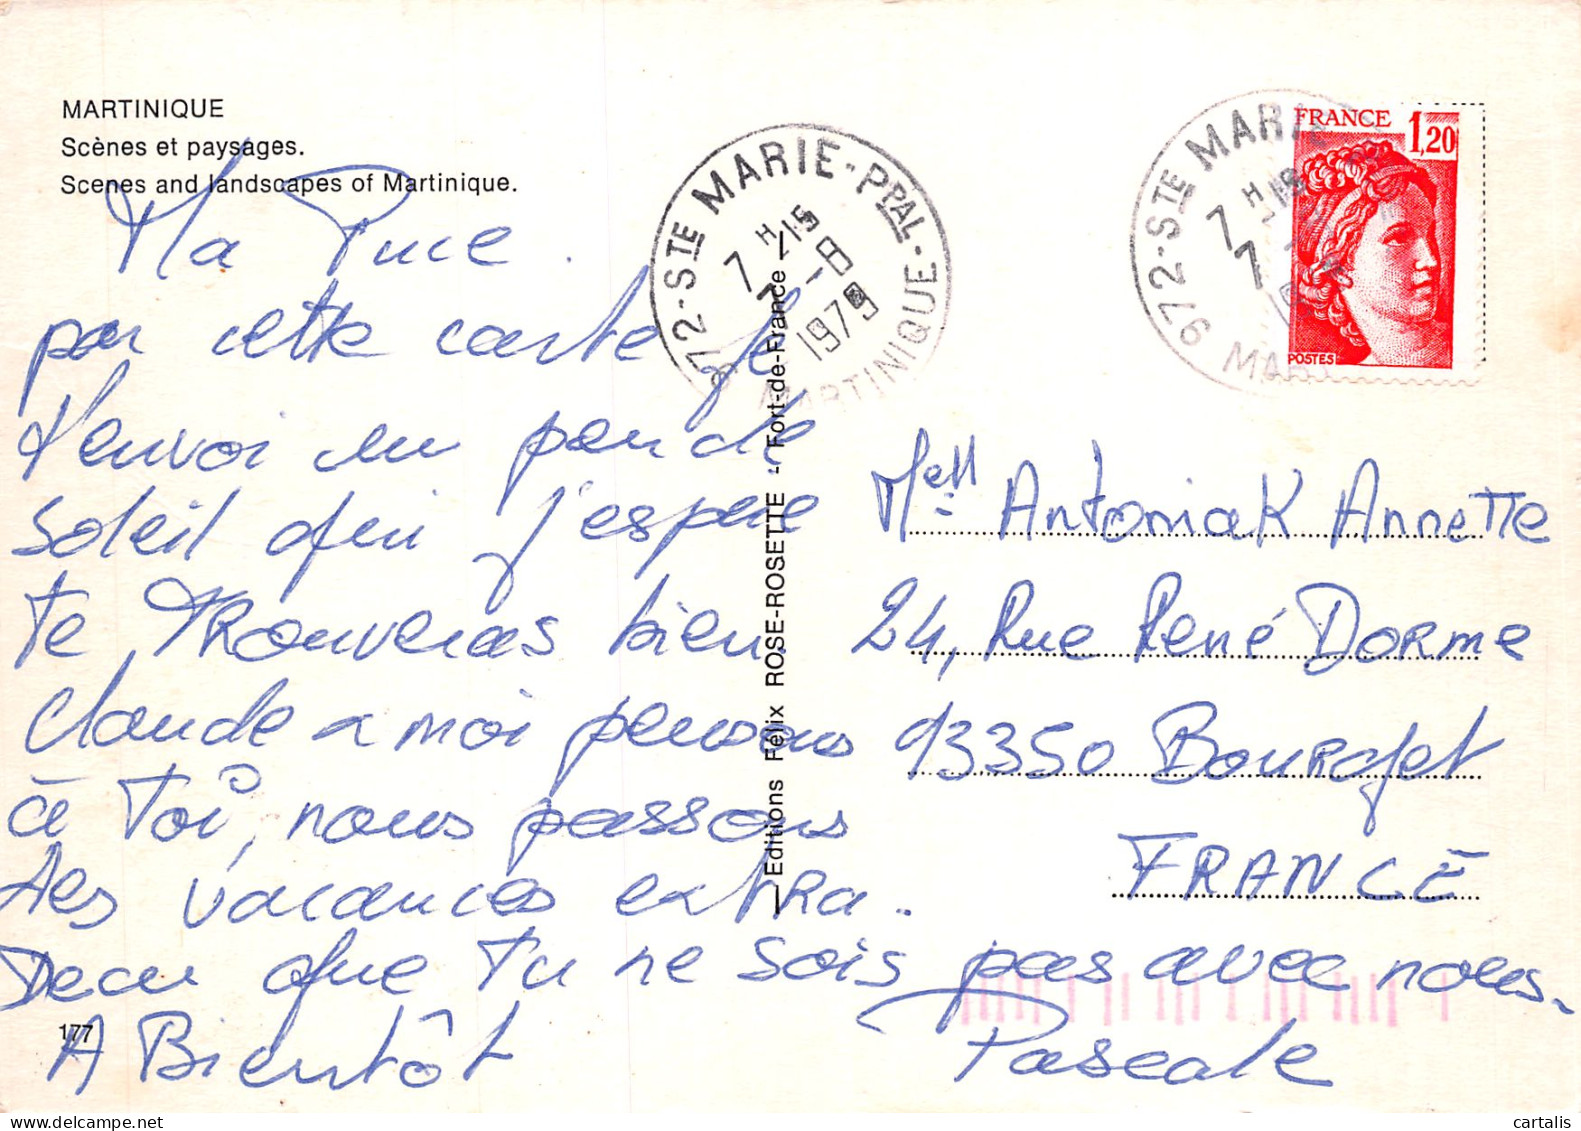 MARTINIQUE
Scènes et paysages.
Scenes and landscapes of Martinique.
Ma Puce.
par cette carte je
t'envoi un peu de
soleil qui j'espere
te trouveras bien
Claude a moi pensons
à Toi, nous passons
des vacances extra..
Decu que Tu ne sois pas avec nous.
A Bientôt
Pascale
177
Editions Félix ROSE-ROSETTE - Fort-de-France
972-STE MARIE-PPAL-
7 H 15
7 -8
1979
MARTINIQUE
972-STE MARIE
7 H 15
7
MART
FRANCE 1,20
POSTES
Melle Antoniak Annette
24, Rue René Dorme
93350 Bourget
FRANCE
cartalis